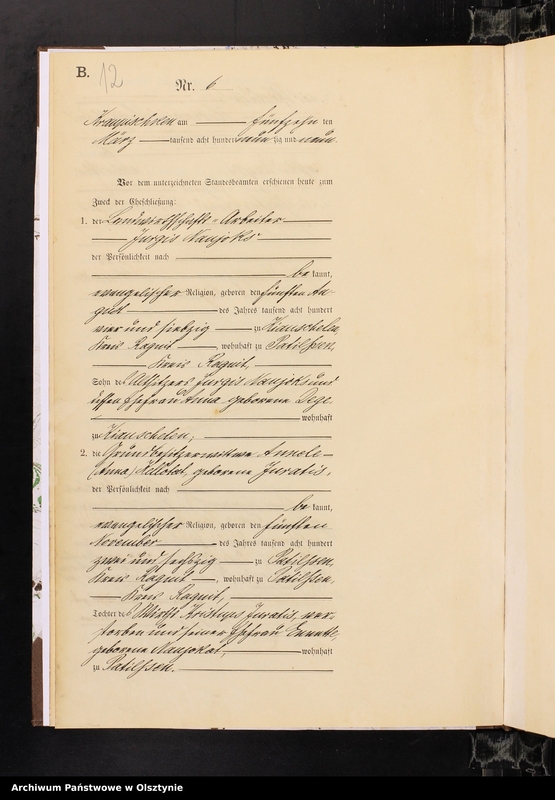 B. 12
Nr. 6
am fünfzehn ten
März tausend acht hundert neun zig und neun.
Vor dem unterzeichneten Standesbeamten erschienen heute zum
Zweck der Eheschließung:
1. der Landwirthschafts-Arbeiter
Jurgis Naujoks
der Persönlichkeit nach
be kannt,
evangelischer Religion, geboren den fünften Au-
gust des Jahres tausend acht hundert
vier und siebzig zu Kiauschelen,
Kreis Ragnit, wohnhaft zu Patilßen,
Kreis Ragnit,
Sohn des Altsitzers Jurgis Naujoks und
Ehefrau Anna geborene Dege
wohnhaft
zu Kiauschelen,
2. die Grundbesitzerwittwe Annele
(Anna) geborene Juratis,
der Persönlichkeit nach
be kannt,
evangelischer Religion, geboren den fünften
November des Jahres tausend acht hundert
zwei und sechszig zu Patilßen,
Kreis Ragnit, wohnhaft zu Patilßen,
Kreis Ragnit,
Tochter des Wirth Kristups Juratis, ver-
storben und seiner Ehefrau Enutte,
geborene Naujokat, wohnhaft
zu Patilßen.
Archiwum Państwowe w Olsztynie